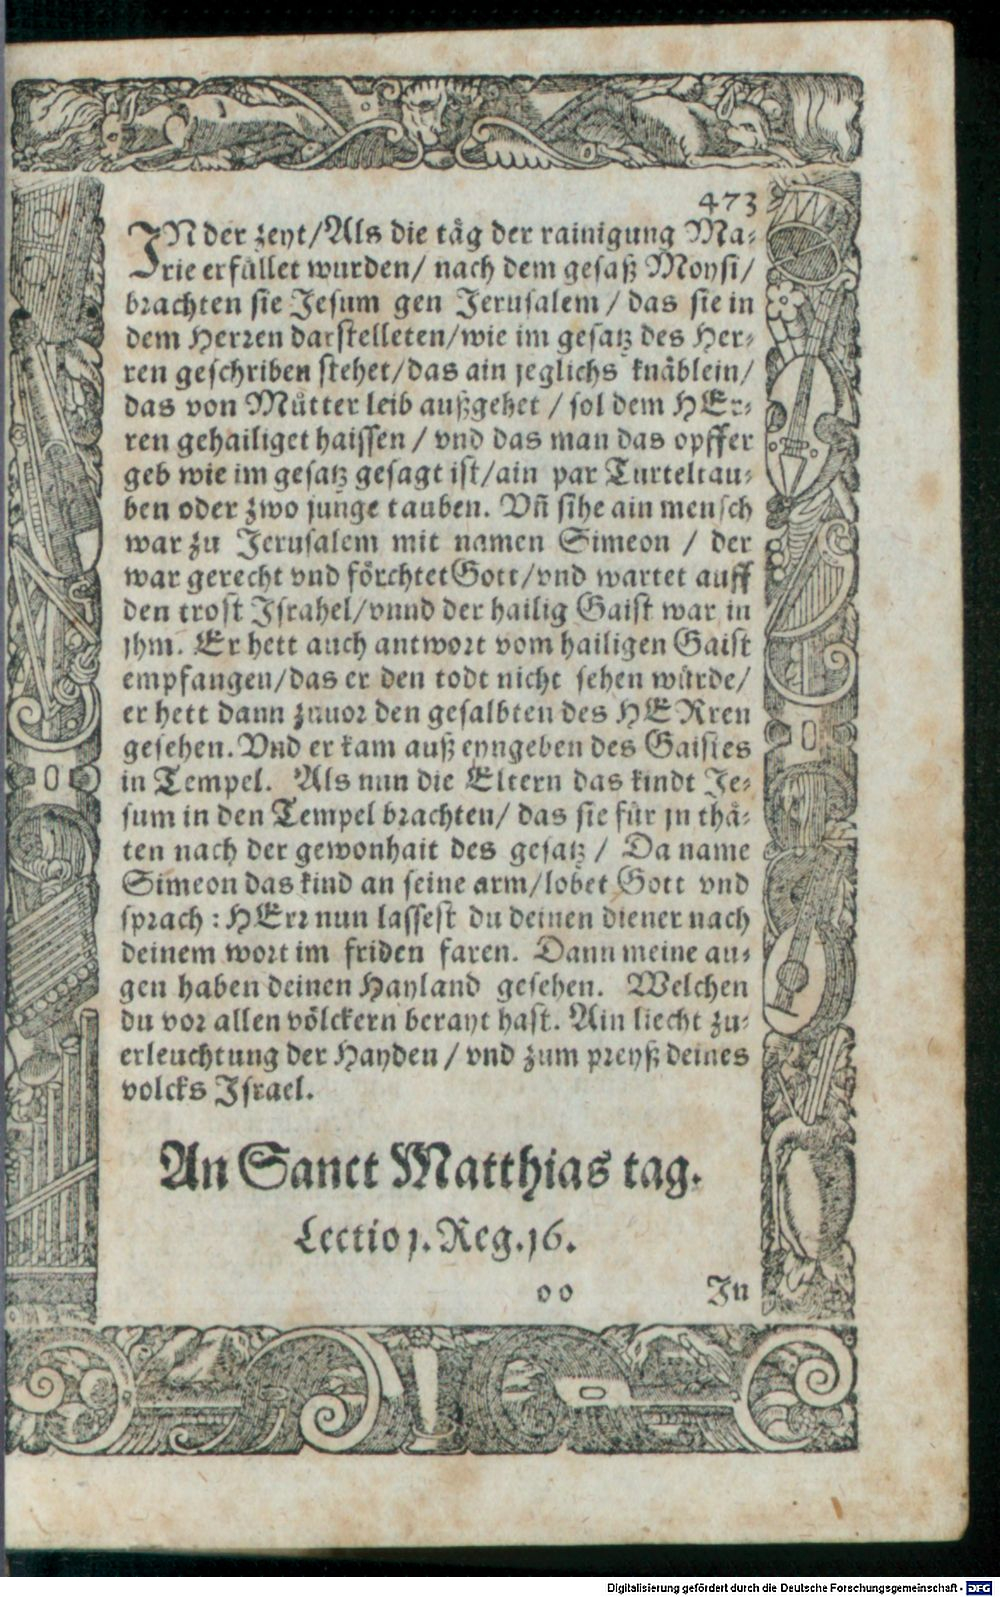 473
IN der zeyt/Als die täg der rainigung Ma-
rie erfüllet wurden/ nach dem gesatz Moysi/
brachten sie Jesum gen Jerusalem / das sie in
dem Herren darstelleten/wie im gesatz des Her-
ren geschriben stehet/das ain jeglichs knäblein/
das von Můtter leib außgehet / sol dem HEr-
ren gehailiget haissen / vnd das man das opffer
geb wie im gesatz gesagt ist/ain par Turteltau-
ben oder zwo junge tauben. Vñ sihe ain mensch
war zu Jerusalem mit namen Simeon / der
war gerecht vnd förchtet Gott/vnd wartet auff
den trost Israhel/vnnd der hailig Gaist war in
jhm. Er hett auch antwort vom hailigen Gaist
empfangen/das er den todt nicht sehen würde/
er hett dann zuuor den gesalbten des HERren
gesehen. Vnd er kam auß eyngeben des Gaistes
in Tempel. Als nun die Eltern das kindt Je-
sum in den Tempel brachten/ das sie für jn thä-
ten nach der gewonhait des gesatz / Da name
Simeon das kind an seine arm/lobet Gott vnd
sprach : HErr nun lassest du deinen diener nach
deinem wort im friden faren. Dann meine au-
gen haben deinen Hayland gesehen. Welchen
du vor allen völckern berayt hast. Ain liecht zu-
erleuchtung der Hayden / vnd zum preyß deines
volcks Israel.
An Sanct Matthias tag.
Lectio j. Reg. j6.
oo In
Digitalisierung gefördert durch die Deutsche Forschungsgemeinschaft - DFG